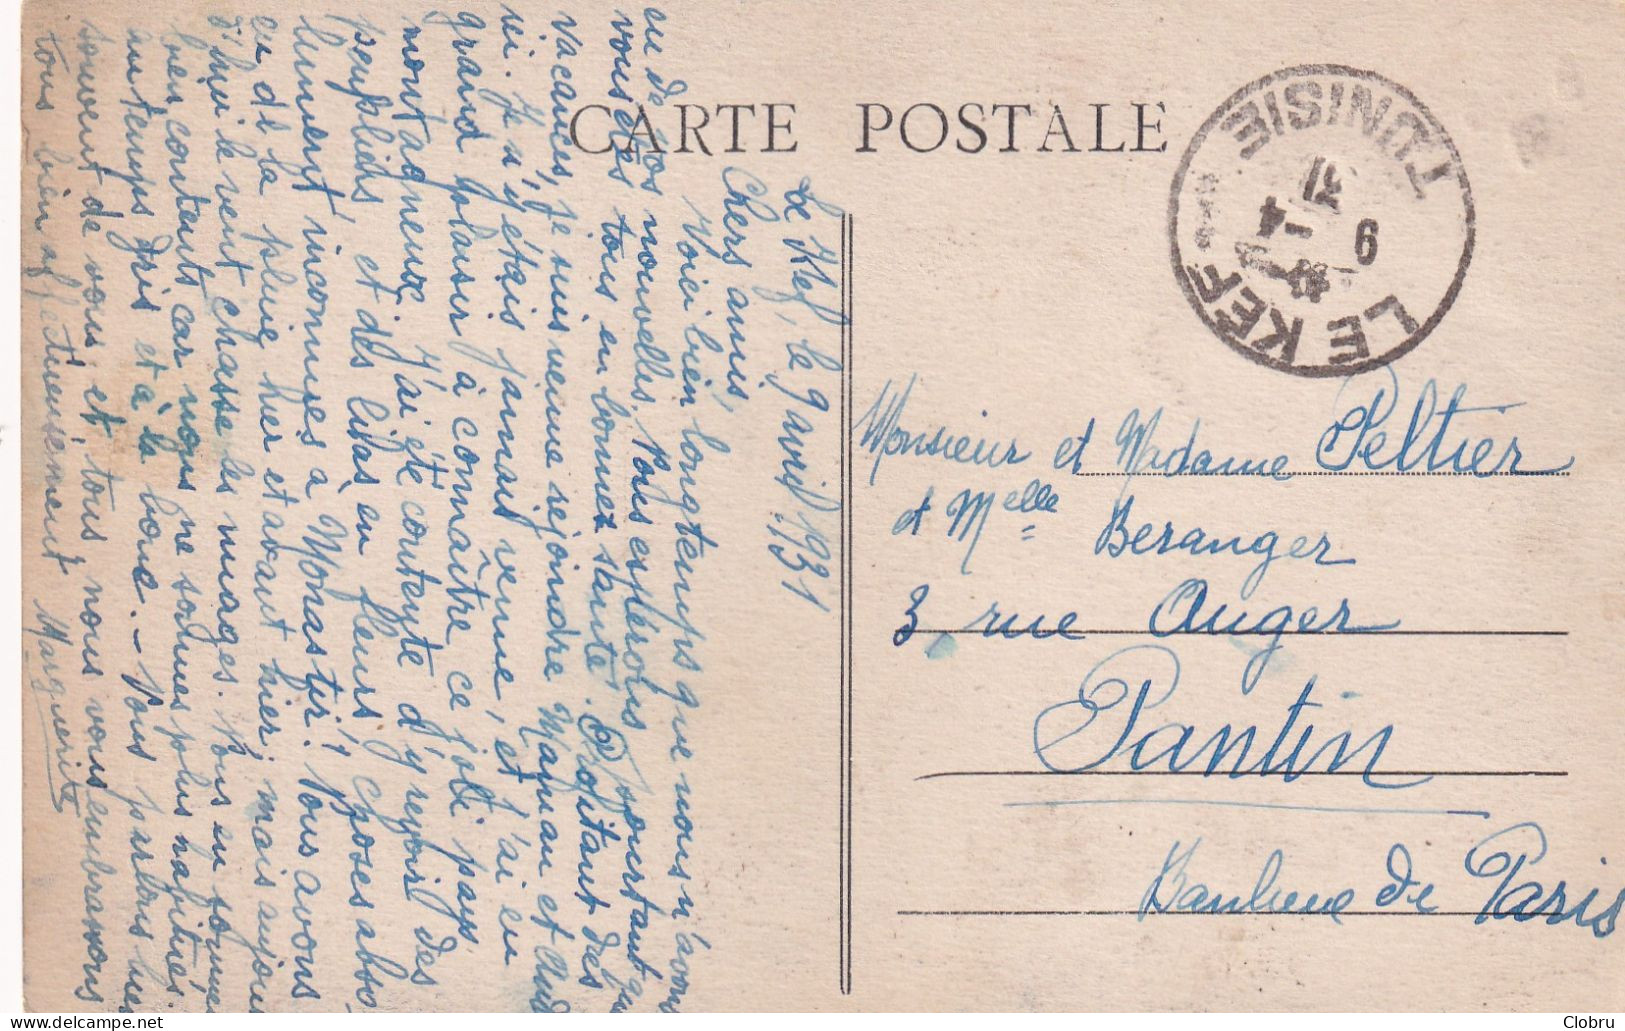 CARTE POSTALE
TUNISIE
9 -4
31
LE KEF
Le Kef, le 9 avril 1931
Chers amis,
Voici bien longtemps que nous n'avons
eu de vos nouvelles. Nous espérons pourtant que
vous êtes tous en bonne santé. Profitant des
vacances, je suis venue rejoindre Maman et
ici. Je n'y étais jamais venue, et j'ai eu
grand plaisir à connaître ce joli pays
montagneux. J'ai été contente d'y revoir des
peupliers, et des lilas en fleurs, choses abso-
lument inconnues à Monastir. Nous avons
eu de la pluie hier et avant hier; mais aujour
d'hui le vent chasse les nuages. Nous en sommes
bien contents car nous ne sommes plus habitués
au temps gris et à la boue. - Nous parlons bien
souvent de vous, et tous, nous vous embrassons
tous bien affectueusement Marguerite
Monsieur et Madame Peltier
et Melle Beranger
3 rue Auger
Pantin
Banlieue de Paris
Clobru